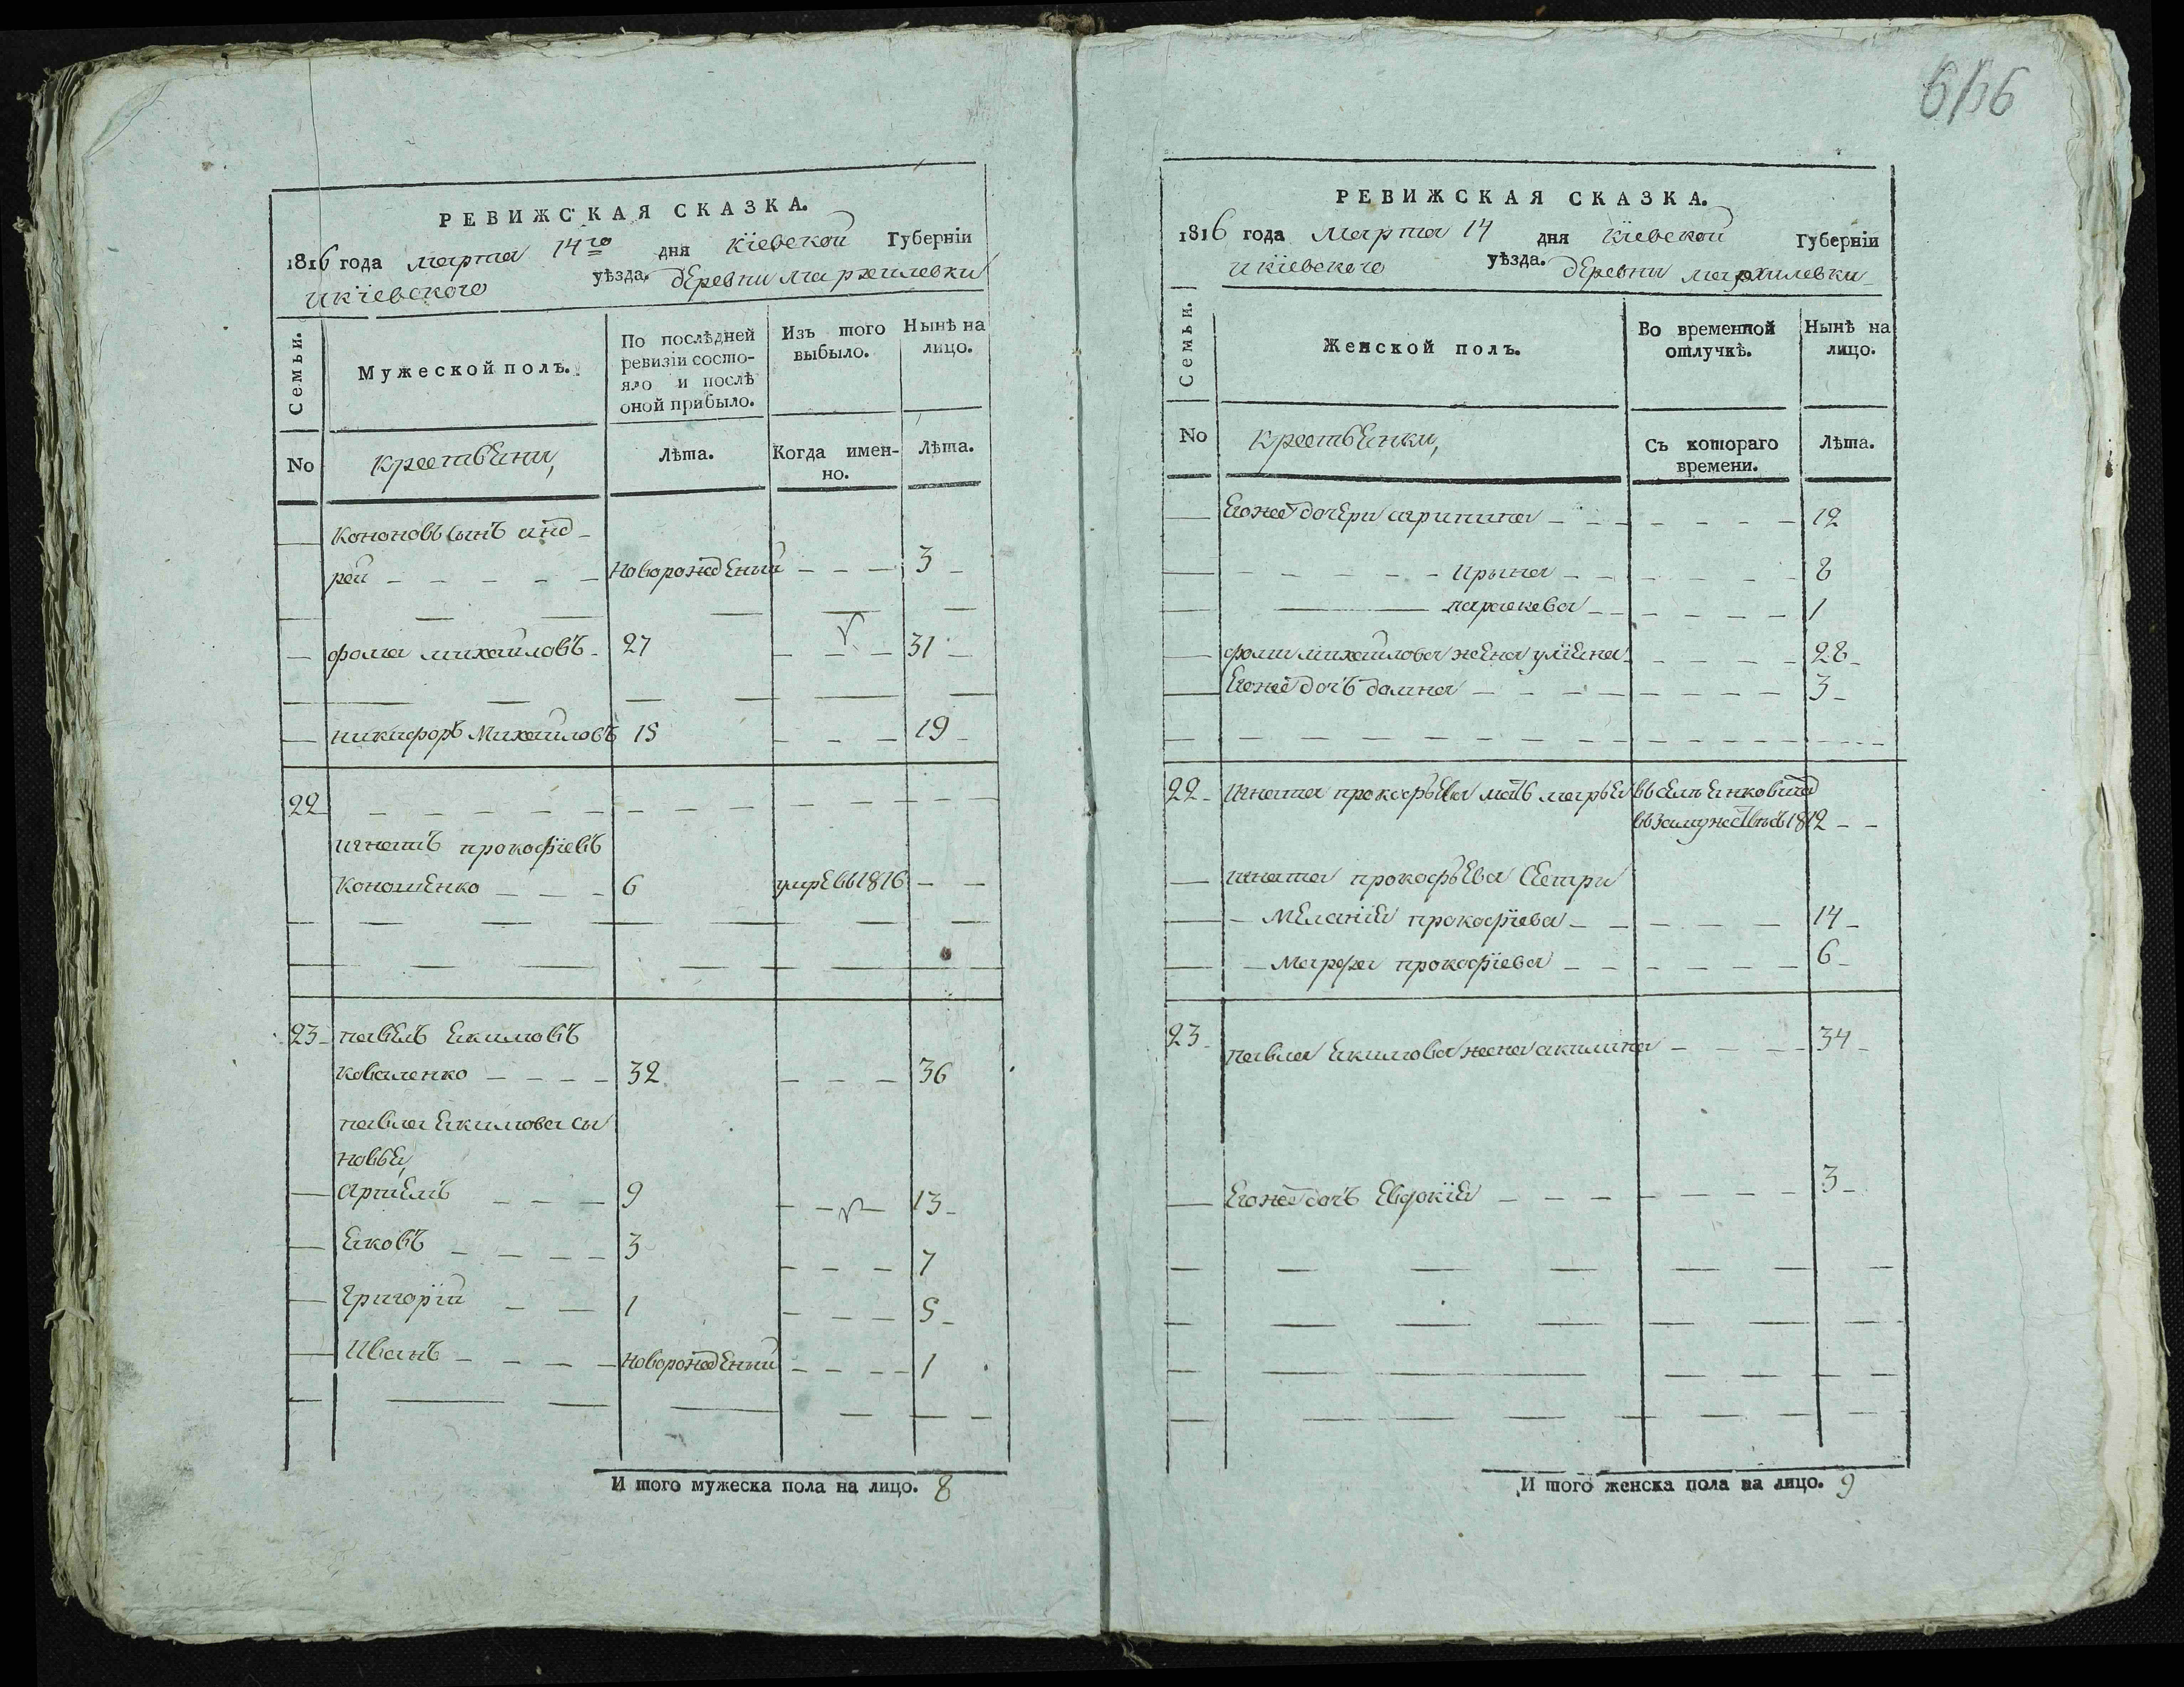 6/66
РЕВИЖСКАЯ СКАЗКА.
1816 года марта 14го дня Кіевской Губерніи
и кіевского уѣзда. деревни мархилевки
Семьи.
Мужеской полъ.
По послѣдней
ревизіи состо-
яло и послѣ
оной прибыло.
Изъ того
выбыло.
Нынѣ на
лицо.
No
крестьяни,
Лѣта.
Когда имен-
но.
Лѣта.
Кононовъ сынъ анд-
рей новорожденый 3
фома михайловъ 27 31
никифоръ Михайловъ 15 19
22
игнатъ прокофіевъ
Кономенко 6 умре въ 1816
23 павелъ якимовъ
Коваленко 32 36
павла якимова сы
новья,
Артемъ 9 13
яковъ 3 7
григорій 1 5
Иванъ новорожденый 1
И того мужеска пола на лицо. 8
РЕВИЖСКАЯ СКАЗКА.
1816 года марта 14 дня Кіевской Губерніи
и кіевского уѣзда. деревни мархилевки
Семьи.
Женской полъ.
Во временной
отлучкѣ.
Нынѣ на
лицо.
No
крестьянки,
Съ котораго
времени.
Лѣта.
Его же дочери агрипина 12
Ирына 8
параскева 1
фоми михайлова жена улияна 28
Его же дочъ домна 3
22 Игната прокофьева мать марья
въ замужествѣ съ 1812
игната прокофьева Сестри
Меланія прокофіева 14
Марфа прокофіева 6
23 павла якимова жена акилина 34
Его же дочъ Евдокія 3
И того женска пола на лицо. 9